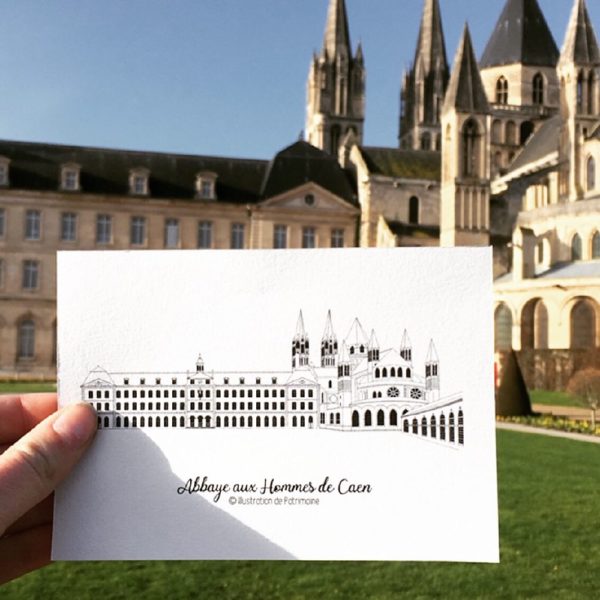 Abbaye aux Hommes de Caen
© illustration de Patrimoine